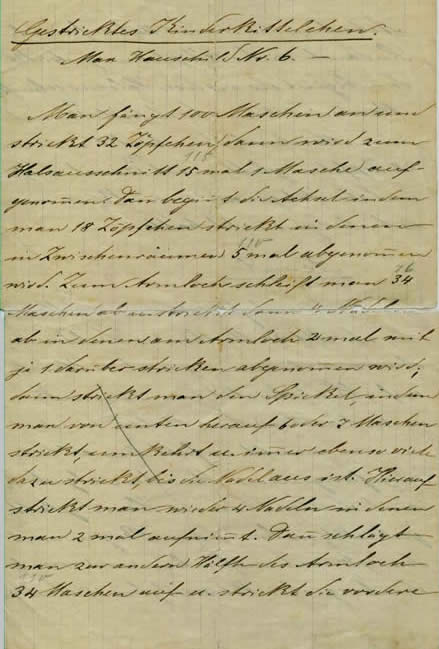 Gestricktes Kinderkittelchen.
Max Hauschild No. 6. —
Man fängt 100 Maschen an und
strickt 32 Zöpfchen, dann wird zum
Halsausschnitt 15 mal 1 Masche auf-
genommen. Dan beginnt die Achsel indem
man 18 Zöpfchen strickt in denen
in Zwischenräumen 5 mal abgenommen
wird. Zum Armloch schlüpft man 34
Maschen ab u. strickt dann 4 Nadeln
ab in denen am Armloch 2 mal mit
je 1 darüber stricken abgenommen wird;
dann strickt man den Spickel, indem
man von unten herauf 6 oder 7 Maschen
strickt, umkehrt u. immer ebenso viele
dazu strickt, bis die Nadel aus ist. Hierauf
strickt man wieder 4 Nadeln in denen
man 2 mal aufnimmt. Dan schlägt
man zur andern Hälfte des Armloch
34 Maschen auf u. strickt die vordere